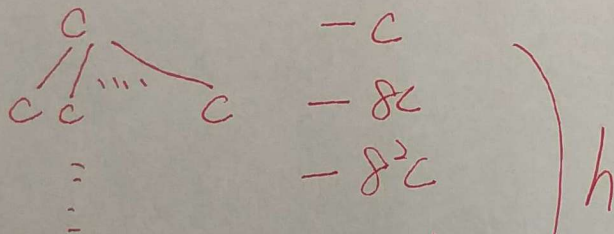 C - C
C C .... C - 8C
- 8²C
h